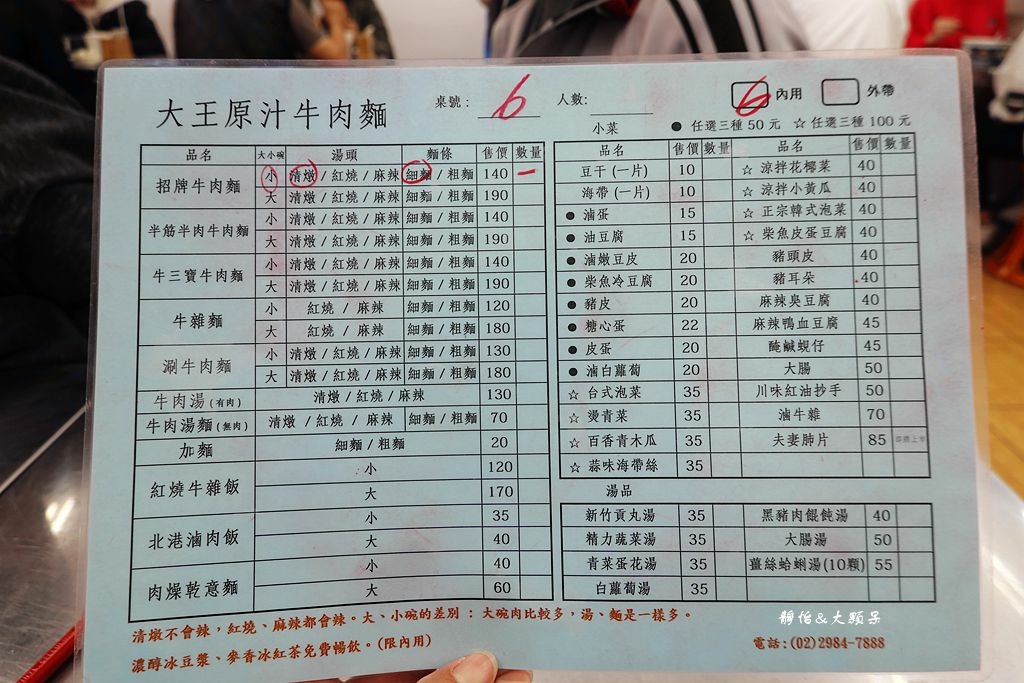 大王原汁牛肉麵 桌號: 6 人數: 6 內用 外帶
小菜 ● 任選三種 50 元 ☆ 任選三種 100 元
品名 大小碗 湯頭 麵條 售價 數量
招牌牛肉麵 小 清燉 / 紅燒 / 麻辣 細麵 / 粗麵 140 一
大 清燉 / 紅燒 / 麻辣 細麵 / 粗麵 190
半筋半肉牛肉麵 小 清燉 / 紅燒 / 麻辣 細麵 / 粗麵 140
大 清燉 / 紅燒 / 麻辣 細麵 / 粗麵 190
牛三寶牛肉麵 小 清燉 / 紅燒 / 麻辣 細麵 / 粗麵 140
大 清燉 / 紅燒 / 麻辣 細麵 / 粗麵 190
牛雜麵 小 紅燒 / 麻辣 細麵 / 粗麵 120
大 紅燒 / 麻辣 細麵 / 粗麵 180
涮牛肉麵 小 清燉 / 紅燒 / 麻辣 細麵 / 粗麵 130
大 清燉 / 紅燒 / 麻辣 細麵 / 粗麵 180
牛肉湯 (有肉) 清燉 / 紅燒 / 麻辣 130
牛肉湯麵 (無肉) 清燉 / 紅燒 / 麻辣 細麵 / 粗麵 70
加麵 細麵 / 粗麵 20
紅燒牛雜飯 小 120
大 170
北港滷肉飯 小 35
大 40
肉燥乾意麵 小 40
大 60
品名 售價 數量 品名 售價 數量
豆干 (一片) 10 ☆ 涼拌花椰菜 40
海帶 (一片) 10 ☆ 涼拌小黃瓜 40
● 滷蛋 15 ☆ 正宗韓式泡菜 40
● 油豆腐 15 ☆ 柴魚皮蛋豆腐 40
● 滷嫩豆皮 20 豬頭皮 40
● 柴魚冷豆腐 20 豬耳朵 40
● 豬皮 20 麻辣臭豆腐 40
● 糖心蛋 22 麻辣鴨血豆腐 45
● 皮蛋 20 醃鹹蜆仔 45
● 滷白蘿蔔 20 大腸 50
☆ 台式泡菜 35 川味紅油抄手 50
☆ 燙青菜 35 滷牛雜 70
☆ 百香青木瓜 35 夫妻肺片 85
☆ 蒜味海帶絲 35
湯品
新竹貢丸湯 35 黑豬肉餛飩湯 40
精力蔬菜湯 35 大腸湯 50
青菜蛋花湯 35 薑絲蛤蜊湯(10顆) 55
白蘿蔔湯 35
清燉不會辣，紅燒、麻辣都會辣。大、小碗的差別 : 大碗肉比較多，湯、麵是一樣多。
濃醇冰豆漿、麥香冰紅茶免費暢飲。(限內用)
靜怡&大顆呆
電話:(02)2984-7888